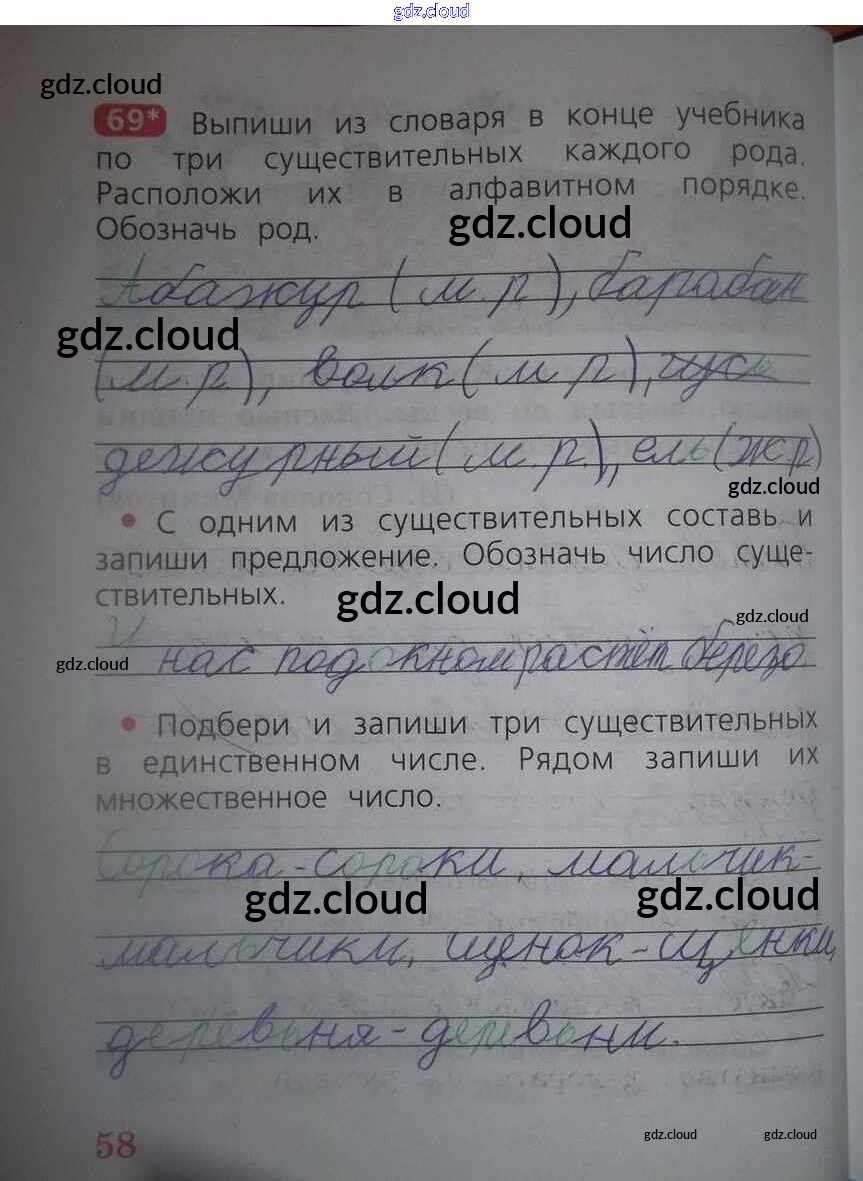 gdz.cloud
gdz.cloud
69* Выпиши из словаря в конце учебника
по три существительных каждого рода.
Расположи их в алфавитном порядке.
Обозначь род.
gdz.cloud
Абажур (м.р), барабан
gdz.cloud
(м.р), волк (м.р), гусь
дежурный (м.р.), ель (ж р)
gdz.cloud
• С одним из существительных составь и
запиши предложение. Обозначь число суще-
ствительных.
gdz.cloud
gdz.cloud
У нас под окном растёт берёза
gdz.cloud
• Подбери и запиши три существительных
в единственном числе. Рядом запиши их
множественное число.
Сорока - сороки, мальчик-
gdz.cloud
gdz.cloud
мальчики, щенок - щенки,
деревьня - деревьни.
58
gdz.cloud
gdz.cloud
gdz.cloud
gdz.cloud